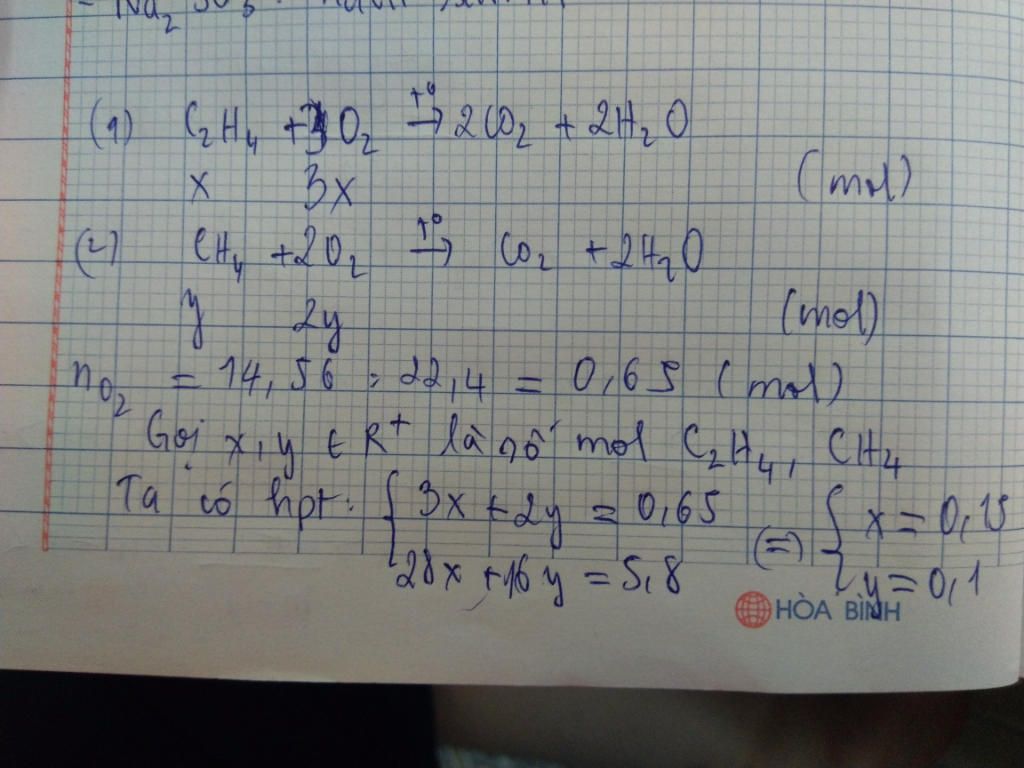 Na₂SO₃
(1) C₂H₄ + 3O₂ →(t°) 2CO₂ + 2H₂O
x 3x (mol)
(2) CH₄ + 2O₂ →(t°) CO₂ + 2H₂O
y 2y (mol)
nO₂ = 14,56 : 22,4 = 0,65 (mol)
Gọi x, y ∈ R⁺ là số mol C₂H₄, CH₄
Ta có hpt: { 3x + 2y = 0,65 (=) { x = 0,15
28x + 16y = 5,8 y = 0,1
HÒA BÌNH